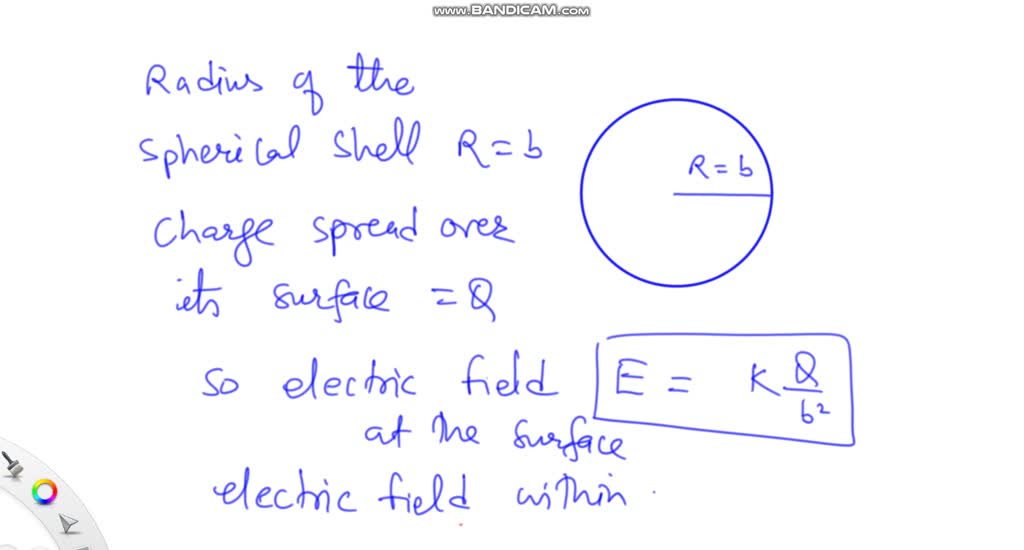 www.BANDICAM.com
Radius of the
spherical shell R = b
R = b
Charge spread over
its surface = Q
So electric field E = K Q/b²
at the surface
electric field within